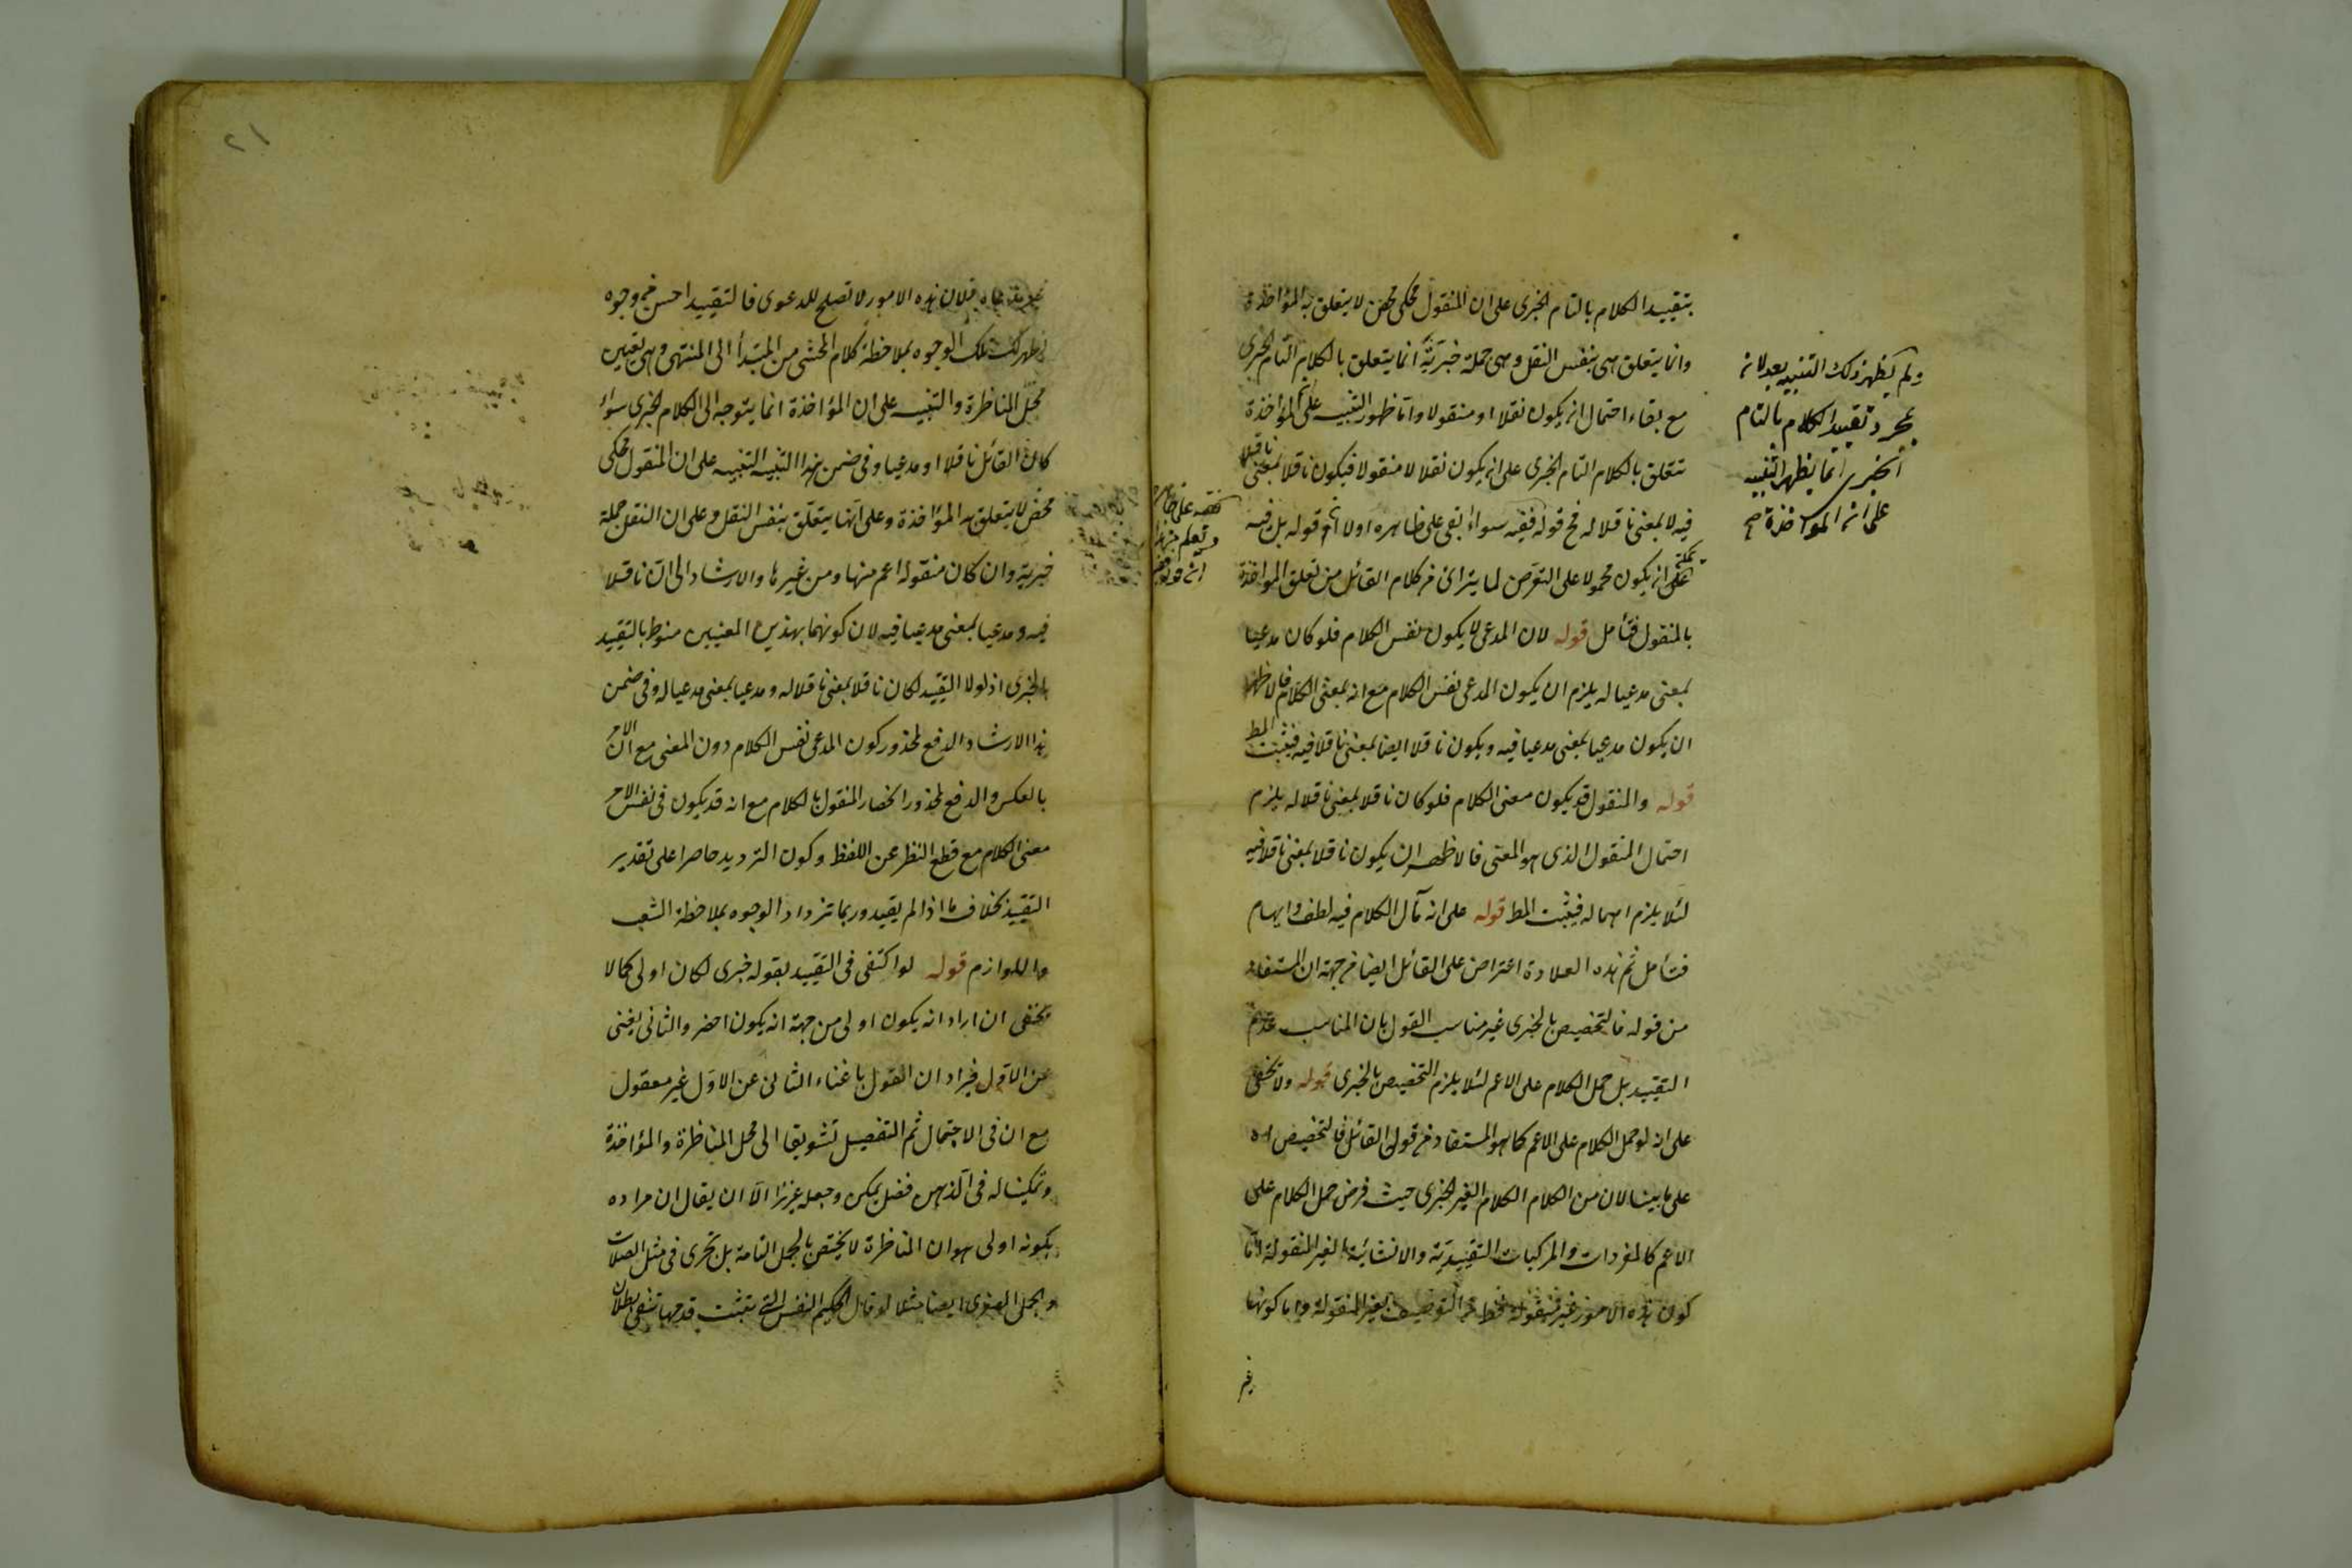 بتقييد الكلام بالتام الخبرى على ان المنقول محكى محض لا يتعلق به المؤاخذة
وانما يتعلق هى بنفس النقل وهى جملة خبرية انما يتعلق بالكلام التام الخبرى
مع بقاء احتمال انه يكون نقلا او منقولا واما ظهور التنبيه على ان المؤاخذة
تتعلق بالكلام التام الخبرى على انه يكون نقلا لا منقولا فيكون ناقلا بمعنى ناقلا
فيه لا بمعنى ناقلا له فح قوله ففيه سواء بقى على ظاهره اولا اى قوله بل فيه
على انه يكون محمولا على التعرض لما يترائى من كلام القائل من تعلق المواخذة
بالمنقول فتأمل قوله لان المدعى لا يكون نفس الكلام فلو كان مدعيا
بمعنى مدعيا له يلزم ان يكون المدعى نفس الكلام مع انه بمعنى الكلام فالاظهر
ان يكون مدعيا بمعنى مدعيا فيه ويكون ناقلا ايضا بمعنى ناقلا فيه فيثبت المط
قوله والمنقول قد يكون معنى الكلام فلو كان ناقلا بمعنى ناقلا له يلزم
احتمال المنقول الذى هو المعنى فالاظهر ان يكون ناقلا بمعنى ناقلا فيه
لئلا يلزم اهماله فيثبت المط قوله على انه مآل الكلام فيه لطف وايهام
فتأمل ثم هذه العلاوة اعتراض على القائل ايضا من جهة ان المستفاد
من قوله فالتخصيص بالخبرى غير مناسب القول بان المناسب عدم
التقييد بل حمل الكلام على الاعم لئلا يلزم التخصيص بالخبرى قوله ولا يخفى
على انه لو حمل الكلام على الاعم كما هو المستفاد من قول القائل فالتخصيص اه
على ما بينا لان من الكلام الكلام الغير الخبرى حيث فرض حمل الكلام على
الاعم كالمفردات والمركبات التقييدية والانشائية الغير المنقولة اما
كون هذه الامور غير منقولة فخط من التوصيف بغير المنقولة واما كونها
غير
ولم يظهر ذلك التنبيه بعد لانه
بمجرد تقييد الكلام بالتام
الخبرى انما يظهر التنبيه
على ان المواخذة صح
فلان هذه الامور لا تصلح للدعوى فالتقييد احسن من وجوه
يظهر لك تلك الوجوه بملاحظة كلام المحشى من المبتدأ الى المنتهى وهى تعيين
محل المناظرة والتنبيه على ان المؤاخذة انما يتوجه الى الكلام الخبرى سواء
كان القائل ناقلا او مدعيا وفى ضمن هذا التنبيه التنبيه على ان المنقول محكى
محض لا يتعلق به المؤاخذة وعلى انها يتعلق بنفس النقل وعلى ان النقل جملة
خبرية وان كان منقوله اعم منها ومن غيرها والارشاد الى ان ناقلا
فيه ومدعيا بمعنى مدعيا فيه لان كونهما بهذين المعنيين منوط بالتقييد
بالخبرى اذ لولا التقييد لكان ناقلا بمعنى ناقلا له ومدعيا بمعنى مدعيا له وفى ضمن
هذا الارشاد الدفع لمحذور كون المدعى نفس الكلام دون المعنى مع ان الامر
بالعكس والدفع لمحذور انحصار المنقول بالكلام مع انه قد يكون فى نفس الامر
معنى الكلام مع قطع النظر عن اللفظ وكون الترديد حاصرا على تقدير
التقييد بخلاف ما اذا لم يقيد وربما تزداد الوجوه بملاحظة الشعب
واللوازم قوله لو اكتفى فى التقييد بقوله خبرى لكان اولى كما لا
يخفى ان اراد انه يكون اولى من جهة انه يكون اخصر والثانى يغنى
عن الاول فيراد ان القول باغناء الثانى عن الاول غير معقول
مع ان فى الاجمال ثم التفصيل تشويقا الى محل المناظرة والمؤاخذة
وتمكينا له فى الذهن فضل تمكن وجعله عزيزا الا ان يقال ان مراده
بكونه اولى هو ان المناظرة لا يختص بالجمل التامة بل تجرى فى مثل الصلات
والجمل الصغرى ايضا مثلا لو قال الحكيم النفس التى يثبت قدمها تنفى بطلان